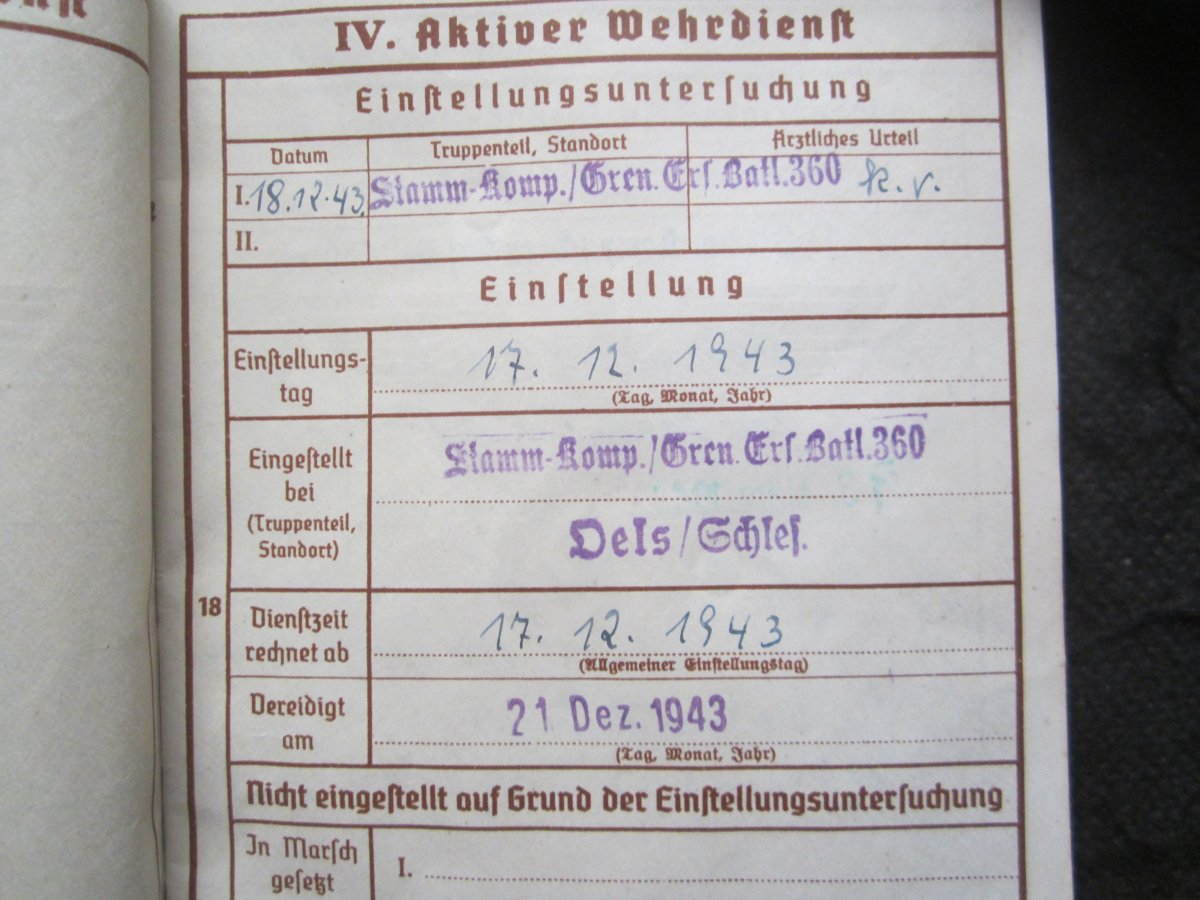 IV. Aktiver Wehrdienst
Einstellungsuntersuchung
Datum Truppenteil, Standort Ärztliches Urteil
I. 18.12.43. Stamm-Komp./Gren. Ers. Batl. 360 k.v.
II.
Einstellung
Einstellungs-
tag
17. 12. 1943
(Tag, Monat, Jahr)
Eingestellt
bei
(Truppenteil,
Standort)
Stamm-Komp./Gren. Ers. Batl. 360
Oels/Schles.
18
Dienstzeit
rechnet ab
17. 12. 1943
(Allgemeiner Einstellungstag)
Vereidigt
am
21 Dez. 1943
(Tag, Monat, Jahr)
Nicht eingestellt auf Grund der Einstellungsuntersuchung
In Marsch
gesetzt
I.